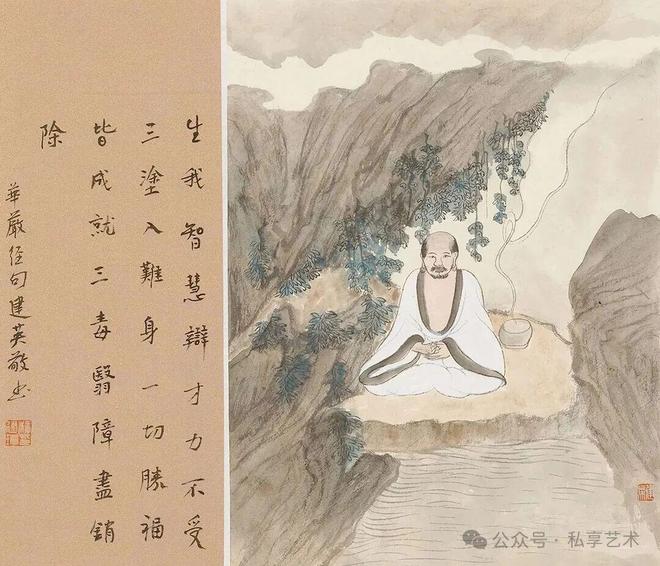 生我智慧辯才力不受
三塗八難身一切勝福
皆成就三毒翳障盡銷
除
華嚴經句建英敬书
公众号 · 私享艺术